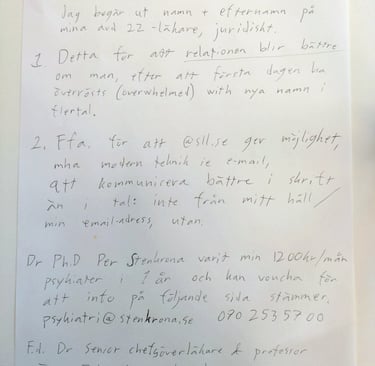 Jag begär ut namn + efternamn på
mina avd 22-läkare, juridiskt.
1 Detta för att relationen blir bättre
om man, efter att första dagen bra
överrösts (overwhelmed) with nya namn i
flertal.
2. Ffa. för att @sll.se ger möjlighet,
mha modern teknik ie e-mail,
att kommunicera bättre i skrift
än i tal: inte från mitt håll/
min email-adress, utan.
Dr Ph.D Per Stenkrona varit min 1200kr/mån
psykiater i 1 år och kan voucha för
att info på följande sida stämmer.
psykiatri@stenkrona.se 070 253 57 00
F.d. Dr senior chefsöverläkare & professor